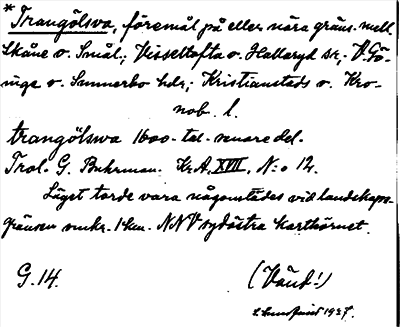 * Trangölsva, föremål på eller nära gräns. mell.
Skåne o. Smål.; Visseltofta o. Hallaryd sr; V. Gö-
inge o. Sunnerbo hdr; Kristianstads o. Kro-
nob. l.
trangölswa 1600-tal. senare del.
Trol. G. Buhrman. Kr.A. XVII, N:o 12.
Läget torde vara någonstädes vid landskaps-
gränsen omkr. 1 km. NNV sydöstra karthörnet.
G. 14. (Vänd!)
1937.